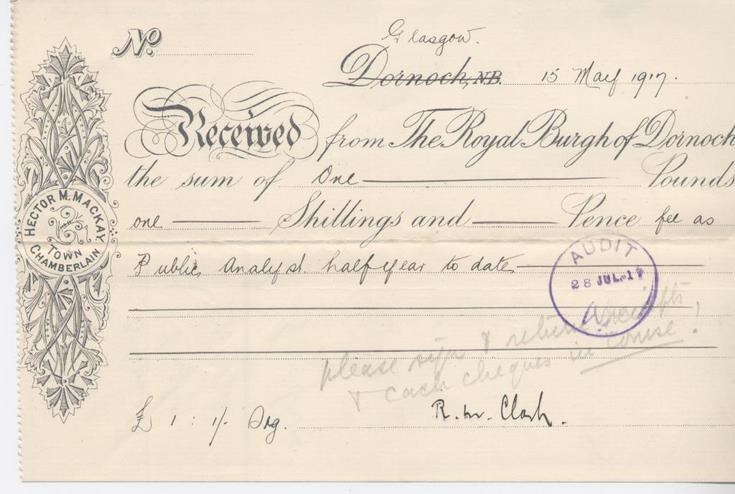 No.
Glasgow.
Dornoch, N.B. 15 May 1917.
Received from The Royal Burgh of Dornoch
the sum of One Pounds
one Shillings and Pence fee as
Public Analyst half year to date
HECTOR M. MACKAY
TOWN
CHAMBERLAIN
AUDIT
28 JUL. 17
please sign & return receipts
& cash cheques in course!
£ 1 : 1/-
R. M. Clark.